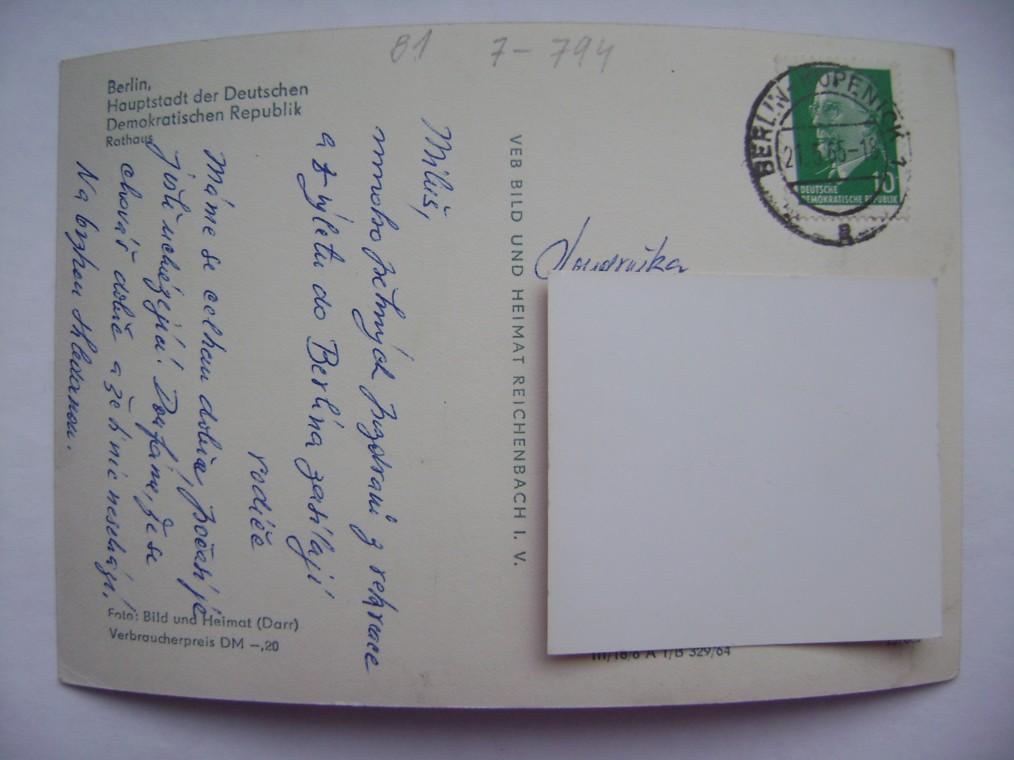 81 7-794
Berlin,
Hauptstadt der Deutschen
Demokratischen Republik
Rathaus
Miluš,
mnoho pěkných pozdravů z rekreace
a z výletu do Berlína zasílají
rodiče
Máme se celkem dobře, počasí je
jistě ucházející. Doufám, že se
chováš dobře a že ti nic neschází!
Na brzkou shledanou.
Foto: Bild und Heimat (Darr)
Verbraucherpreis DM –,20
VEB BILD UND HEIMAT REICHENBACH I. V.
BERLIN-KÖPENICK 1
DEUTSCHE
DEMOKRATISCHE REPUBLIK
10
a
Soudružka
III/18/6 A 1/B 329/64